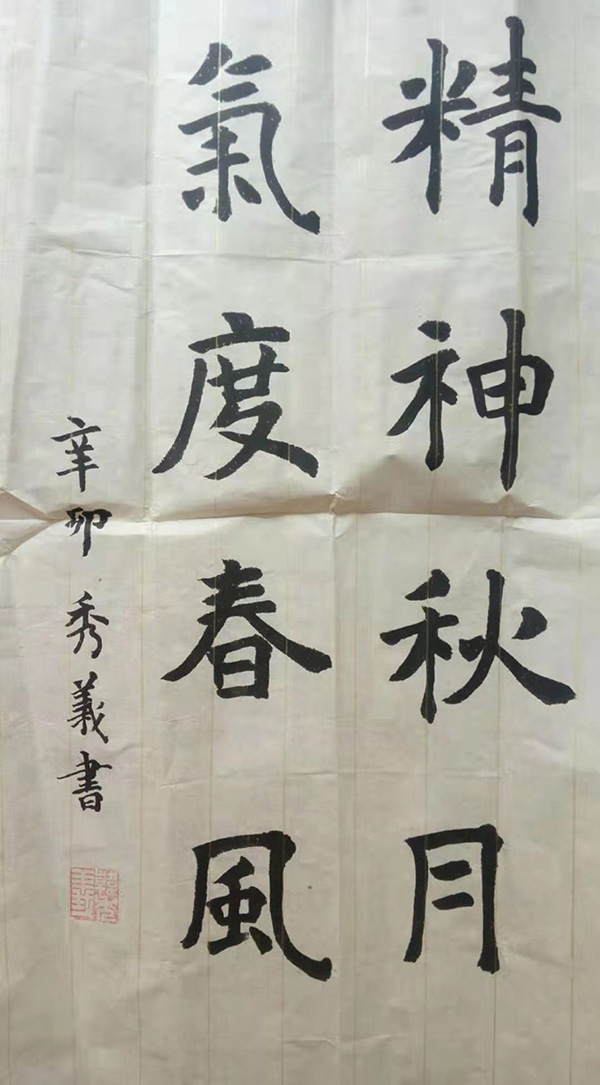 精神秋月
氣度春風
辛卯秀義書